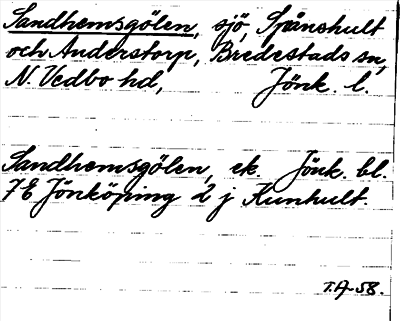 Sandhemsgölen, sjö, Spånshult
och Anderstorp, Bredestads sn,
N Vedbo hd, Jönk. l.
Sandhemsgölen, ek. Jönk. bl.
7E Jönköping 2 j Kunhult.
T.A-58.